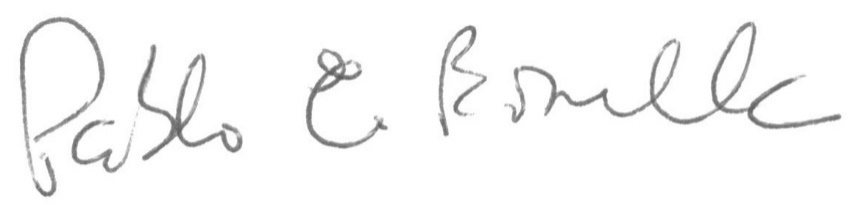 Pablo E. Bonilla